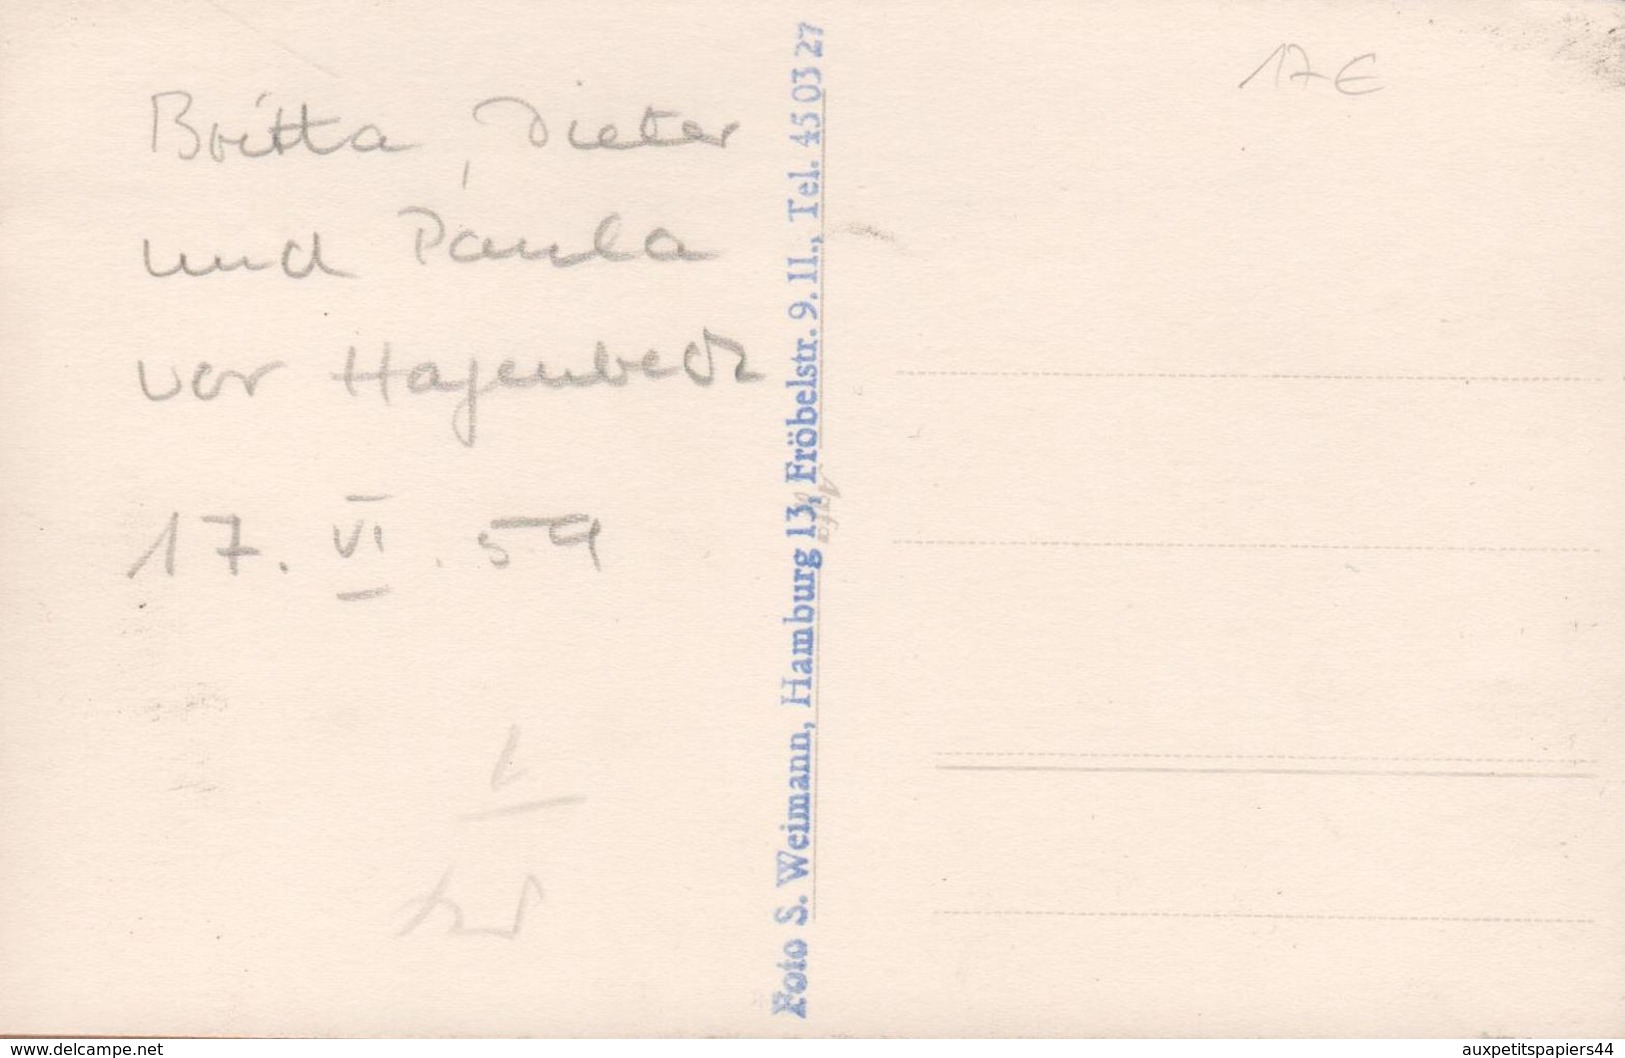 Britta, Dieter
und Paula
vor Hagenbeck
17. VI. 59
Foto S. Weimann, Hamburg 13, Fröbelstr. 9. II., Tel. 45 03 27
Agfa
17 €
www.delcampe.net
auxpetitspapiers44